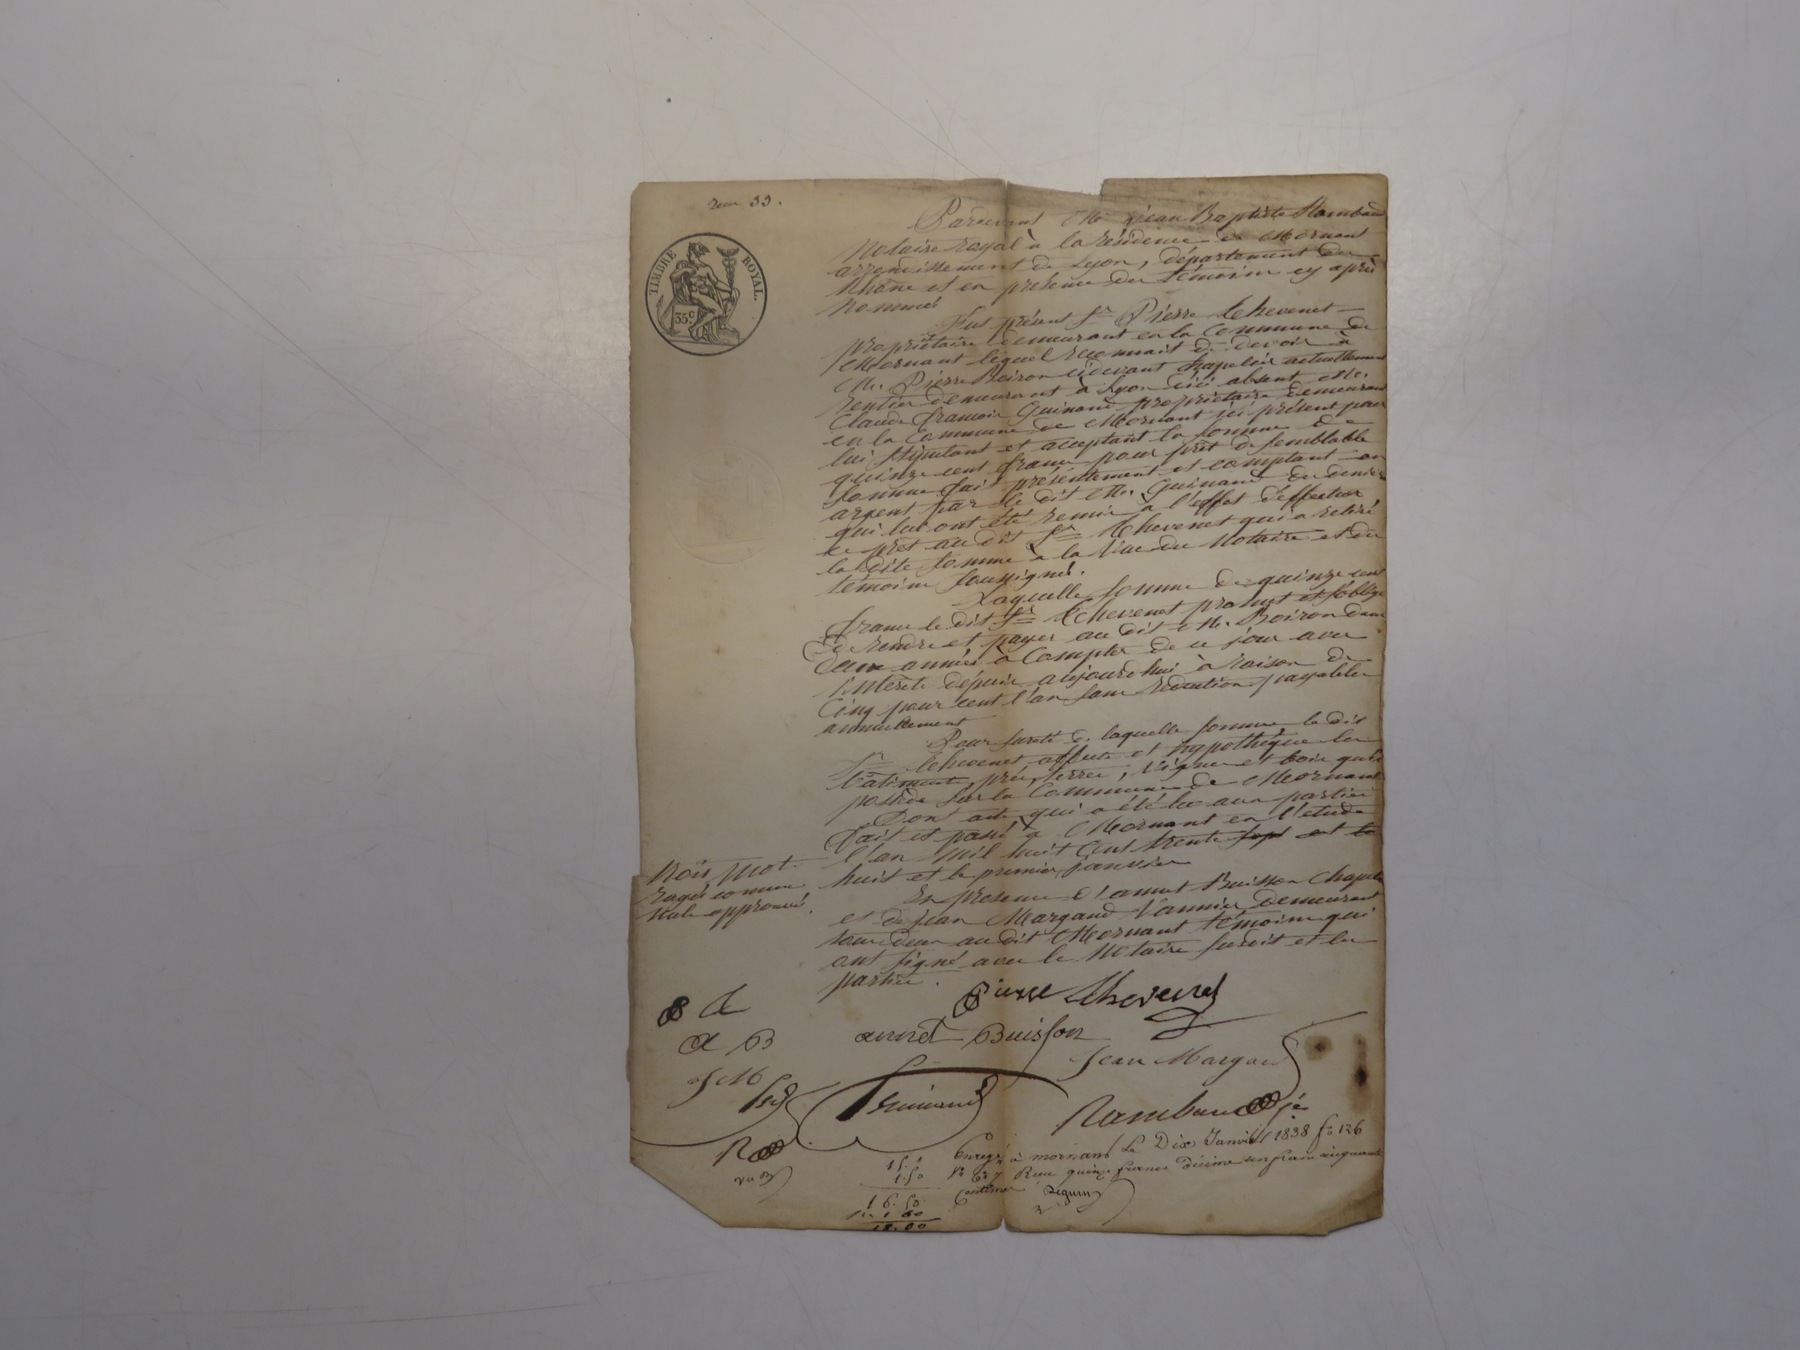 33.
TIMBRE ROYAL.
35c
Pardevant Me Jean Baptiste Rambaud
Notaire royal à la résidence de Mornant
arrondissement de Lyon, département du
Rhône et en présence des témoins cy après
nommés
Fut présent Sr Pierre Thevenet
propriétaire demeurant en la Commune de
Mornant lequel reconnait de devoir à
Mr. Pierre Boiron cidevant chapelier actuellement
rentier demeurant à Lyon ici absent Mr.
Claude françois Guinand propriétaire demeurant
en la Commune de Mornant ici présent pour
lui stipulant et acceptant la somme de
quinze cent francs pour prêt de semblable
somme fait présentement et comptant en
argent par le dit Mr. Guinand des deniers
qui lui ont été remis à l'effet d'effectuer
ce prêt au dit Sr Thevenet qui a retiré
la dite somme à la vue du Notaire et des
témoins soussignés.
Laquelle somme de quinze cent
francs le dit Sr Thevenet promet et s'oblige
de rendre et payer au dit Mr. Boiron dans
deux années à Compter de ce jour avec
l'intérêt depuis aujourd'hui à raison de
Cinq pour cent l'an sans rétention payables
annuellement
Pour sureté de laquelle somme le dit
Sr Thevenet affecte et hypothèque les
bâtiments, prés, terres, vignes et bois qu'il
possède sur la Commune de Mornant
Dont acte qui a été lu aux parties
fait et passé à Mornant en l'étude
l'an Mil huit Cent trente sept et le
huit et le premier janvier
En présence d'annet Buisson Chapelier
et de Jean Margand Vannier demeurant
tous deux au dit Mornant témoins qui
ont signé avec le Notaire susdit et les
parties.
trois mots
rayés comme
nuls approuvés.
Pierre Thevenet
A B
annet Buisson
J M
Jean Margand
Guinand
Rambaud
Enregé à mornant Le Dix Janvier 1838 fo 126
Vo Reçu quinze francs décime un franc cinquante
Centimes
15.
1.50
16.50
1.60
18.00